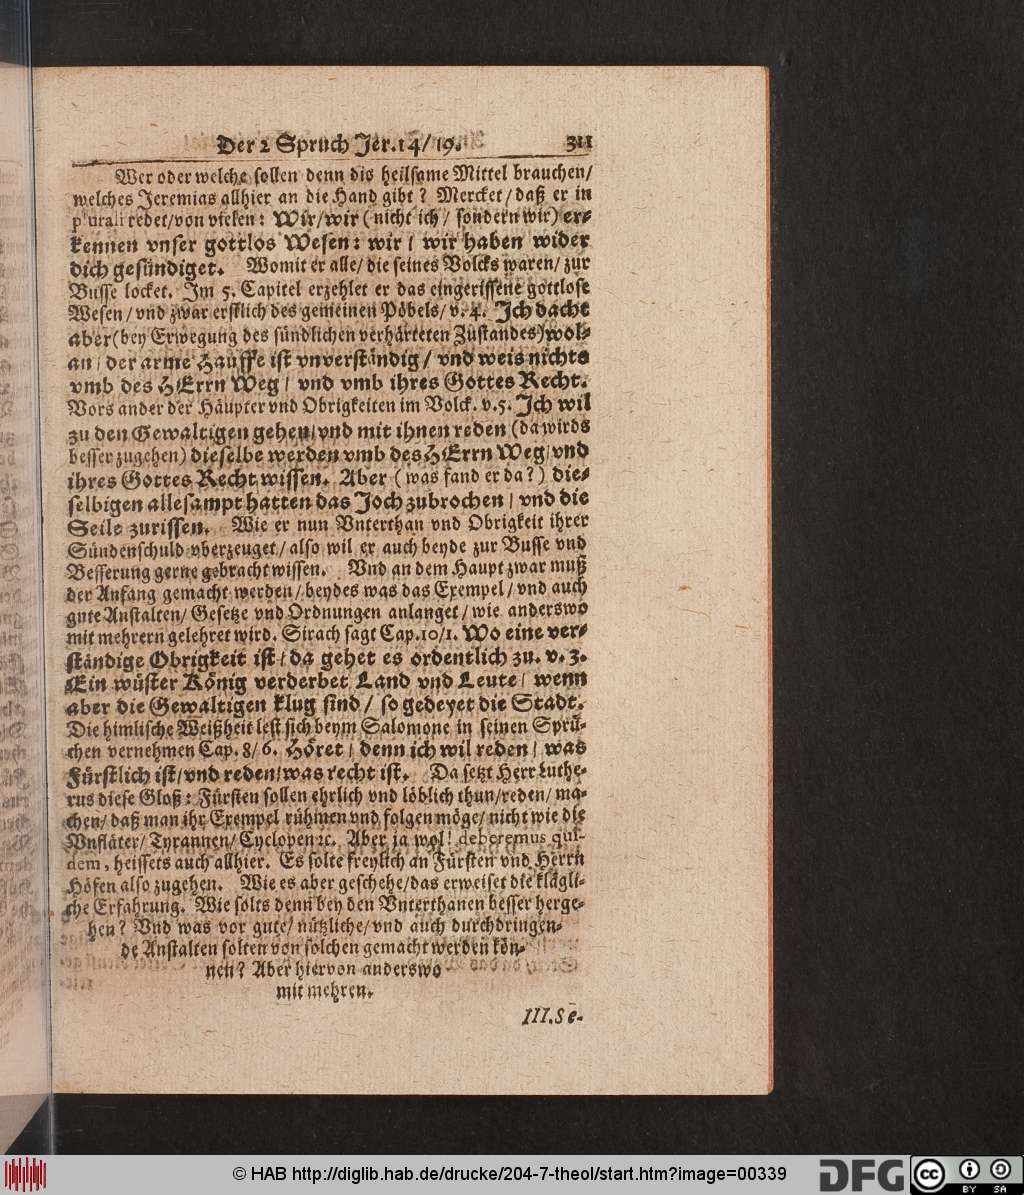 Der 2 Spruch Jer. 14/ 19. 311
Wer oder welche sollen denn dis heilsame Mittel brauchen/
welches Jeremias allhier an die Hand gibt? Mercket/ daß er in
plurali redet/ von vielen: Wir/ wir (nicht ich/ sondern wir) er-
kennen vnser gottlos Wesen: wir/ wir haben wider
dich gesündiget. Womit er alle/ die seines Volcks waren/ zur
Busse locket. Im 5. Capitel erzehlet er das eingerissene gottlose
Wesen/ vnd zwar erstlich des gemeinen Pöbels/ v. 4. Ich dacht
aber (bey Erwegung des sündlichen verhärteten Zustandes) wol-
an/ der arme Hauffe ist vnverständig/ vnd weis nichts
vmb des HErrn Weg/ vnd vmb ihres Gottes Recht.
Vors ander der Häupter vnd Obrigkeiten im Volck. v. 5. Ich wil
zu den Gewaltigen gehen/ vnd mit ihnen reden (da wirds
besser zugehen) dieselbe werden vmb des HErrn Weg/ vnd
ihres Gottes Recht wissen. Aber (was fand er da?) die-
selbigen allesampt hatten das Joch zubrochen/ vnd die
Seile zurissen. Wie er nun Vnterthan vnd Obrigkeit ihrer
Sündenschuld vberzeuget/ also wil er auch beyde zur Busse vnd
Besserung gerne gebracht wissen. Vnd an dem Haupt zwar muß
der Anfang gemacht werden/ beydes was das Exempel/ vnd auch
gute Anstalten/ Gesetze vnd Ordnungen anlanget/ wie anderswo
mit mehrern gelehret wird. Sirach sagt Cap. 10/ 1. Wo eine ver-
ständige Obrigkeit ist/ da gehet es ordentlich zu. v. 3.
Ein wüster König verderbet Land vnd Leute/ wenn
aber die Gewaltigen klug sind/ so gedeyet die Stadt.
Die himlische Weißheit lest sich beym Salomone in seinen Sprü-
chen vernehmen Cap. 8/ 6. Höret/ denn ich wil reden/ was
Fürstlich ist/ vnd reden/ was recht ist. Da setzt Herr Luthe-
rus diese Gloß: Fürsten sollen ehrlich vnd löblich thun/ reden/ ma-
chen/ daß man ihr Exempel rühmen vnd folgen möge/ nicht wie die
Vnfläter/ Tyrannen/ Cyclopen ꝛc. Aber ja wol! deberemus qui-
dem, heissets auch allhier. Es solte freylich an Fürsten vnd Herrn
Höfen also zugehen. Wie es aber geschehe/ das erweiset die klägli-
che Erfahrung. Wie solts denn bey den Vnterthanen besser herge-
hen? Vnd was vor gute/ nützliche/ vnd auch durchdringen-
de Anstalten solten von solchen gemacht werden kön-
nen? Aber hiervon anderswo
mit mehren.
III. Se-
© HAB http://diglib.hab.de/drucke/204-7-theol/start.htm?image=00339
DFG
cc BY SA